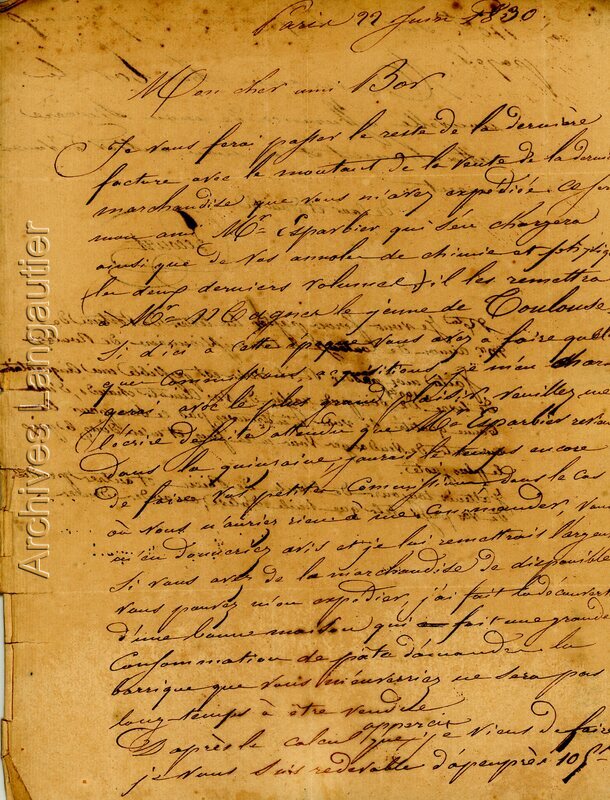 Paris 22 Juin 1830.
Mon cher ami Bor
Je vous ferai passer le reste de la dernière
facture avec le montant de la vente de la derni
marchandise que vous m'avez expédiée. Ce ser
mon ami Mr Esparbier qui s'en chargera
ainsi que de vos annales de chimie et phisiq
(les deux derniers volumes) il les remettra
à Mr le jeune de Toulouse
Si d'ici à cette époque vous avez à faire quel
ques commissions je m'en char
gerai avec le plus grand plaisir, veuillez me
l'écrire de suite attendu que Mr Esparbier
Dans la quinzaine, j'aurai le temps encore
de faire vos petites commissions dans le cas
où vous n'auriez rien à me commander, vous
m'en donneriez avis et je lui remettrais l'argent
Si vous avez de la marchandise de disponible
vous pouvez m'en expédier, j'ai fait la découvert
d'une bonne maison qui fait une grande
Consommation de la
barrique que vous m'enverriez ne sera pas
long-temps à être vendue
D'après le calcul apperçu que je viens de faire
je vous suis redevable d'apeuprès 105
Archives Langautier